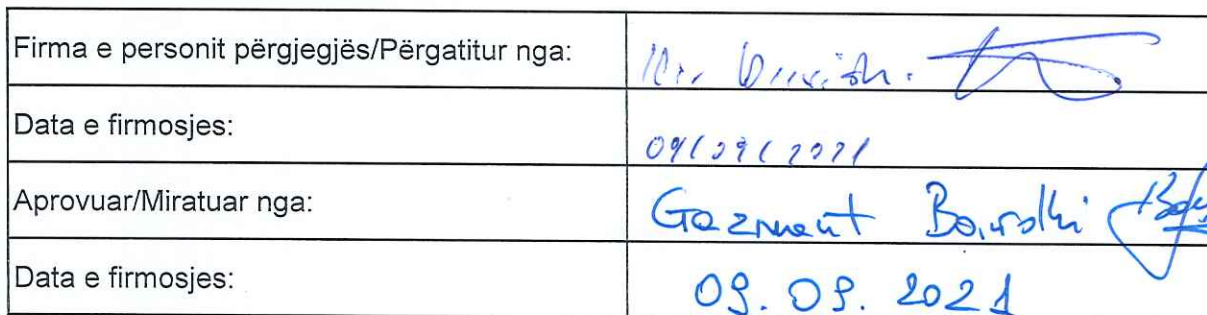 Firma e personit përgjegjës/Përgatitur nga:
Data e firmosjes: 09/09/2021
Aprovuar/Miratuar nga: Gazment
Data e firmosjes: 09.09.2021